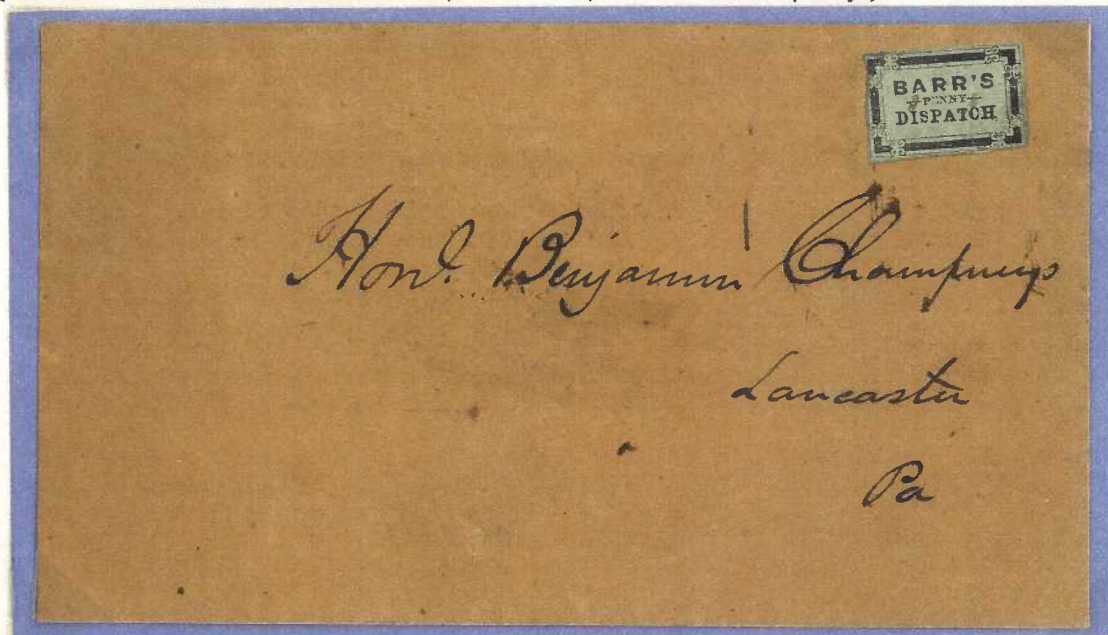 BARR'S
PENNY
DISPATCH
Hon. Benjamin Champneys
Lancaster
Pa